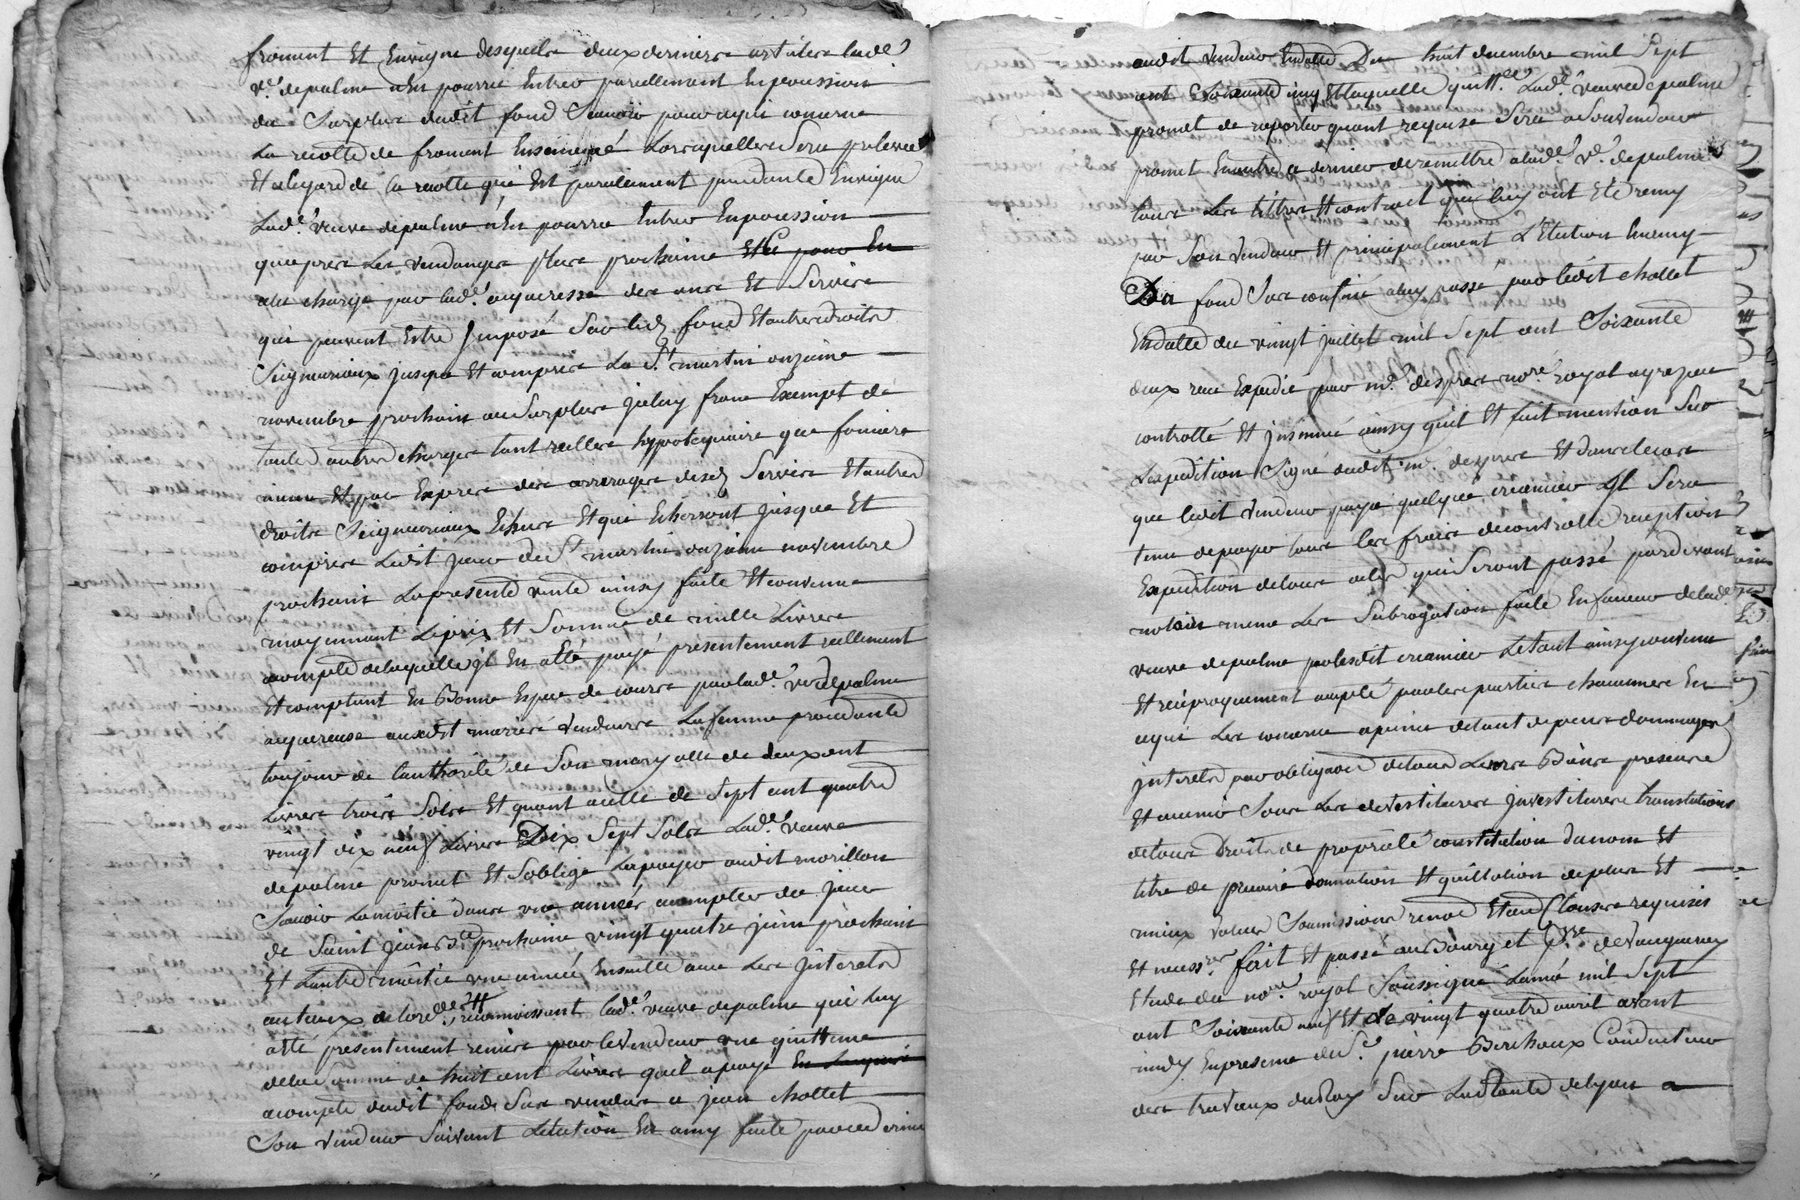 froment Et Envigne desquels deux derniers articles lad.e
v.e depalme n'En pourra Entrer pareillement Enpocession
du Surplus dudit fond Scavoir pour ce qui concerne
La recolte de froment Ensemencé Lorsquelle Sera prelevée
Et alegard de la recolte qui Est pareillement pendante Envigne
Lad.e veuve depalme n'En pourra Entrer Enpocession
qu'apres Les vendanges plus prochaine Et pour En
ala charge par lad.e acqueresse des cens Et Service
qui peuvent Estre Imposé Sur led. fond Et autres droits
Seigneuriaux jusque Et compris La S.t martin onzieme
novembre prochain au Surplus jceluy franc Exempt de
toutes autres charges tant reelles hypotequaire que fonciere
meme Et par Expres des arrerages desd. Service Et autres
droits Seigneuriaux Echus Et qui Echerront jusque Et
compris Ledit jour de S.t martin onzieme novembre
prochain Lapresente vente ainsy faite Et convenue
moyennant Leprix Et Somme de mille Livres
acompte delaquelle jl En a Eté payé presentement reellement
Et comptant En Bonne Espece de cours par lad.e v.e depalme
acquereuse auxdit mariés vendeurs La femme procedante
toujour de l'authorité de Son mary celle de deux cent
Livres trois Sols Et quant acelle de Sept cent quatre
vingt dix neuf Livres Dix Sept Sols Lad.e veuve
depalme promet Et Soblige Lapayer audit morillon
Scavoir Lamoitié dans une année acompter du jour
de Saint jean B.te prochaine vingt quatre juin prochain
Et Lautre moitié une année Ensuitte avec Les jnterets
au taux de lord.ce reconnoissant lad.e veuve depalme qui luy
a Eté presentement remise par le vendeur une quittance
dela Somme de huit cent Livres qu'il apayé
acompte dudit fonds Sus vendus a jean chollet
Son vendeur Suivant Lelation En amy faite par ce dernier
audit vendeur Endatte Du huit decembre mil Sept
cent Soixante cinq Et laquelle quitt.ce Lad.e veuve depalme
promet de raporter quant requise Sera a Souvendeur
promet Enoutre ce dernier de remettre alad.e v.e depalme
tous Les titres Et contract qui luy ont Eté remy
par Son vendeur Et principalement L'Elation Enamy
Du fond Sus confiné aluy passé par ledit chollet
Endatte du vingt juillet mil Sept cent Soixante
deux recu Expedié par m.e despres no.re royal ayzeron
controllé Et jnsinué ainsy qu'il Et fait mention Sur
Lexpedition Signé dudit m.e despres Et dans lecas
que ledit vendeur paya quelque creancier jl Sera
tenu depayer tous les frais decontrolle reception
Expedition detous actes qui Seront passé pardevant
notaire meme Les Subrogation faite Enfaveur delad.e
veuve depalme par lesdit creancier Letout ainsy convenu
Et reciproquement accepté par les parties chacunnes En
cequi Les concerne apeine detout depens dommages
jnterets par obligaon detous Leurs Biens presents
Et avenir Sous Les devestitures jnvestitures translations
detous Droits de proprieté constitution du nom Et
titre de precaire donnation Et quittation deplus Et
mieux values Soumissions renon.on Et autres Clauses requises
Et necess.res fait Et passé au Bourg et P.sse de vaugneray
Etude du no.re royal Soussigné L'anné mil Sept
cent Soixante neuf Et le vingt quatre avril avant
midy En presence du S.r pierre Berthaux Conducteur
des travaux du Roy Sur La Route de lyon a